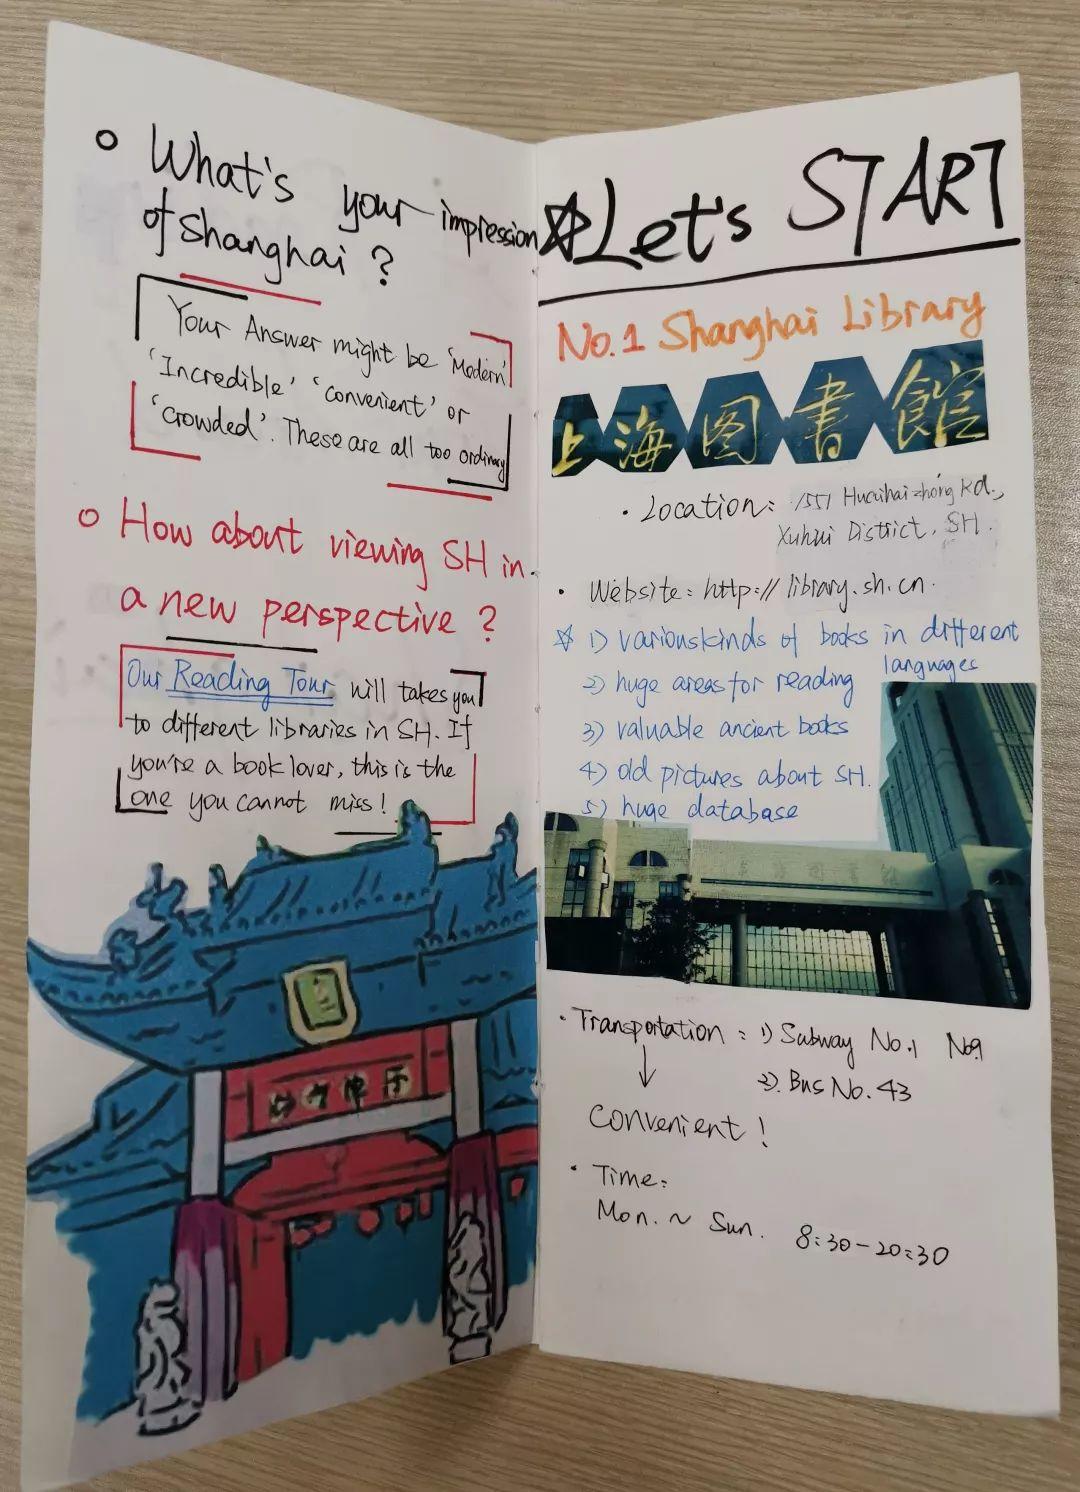 What's your impression
of Shanghai ?
Your Answer might be 'Modern'
'Incredible' 'convenient' or
'crowded'. These are all too ordinary
How about viewing SH in
a new perspective ?
Our Reading Tour will takes you
to different libraries in SH. If
you're a book lover, this is the
one you cannot miss !
Let's START
No.1 Shanghai Library
上海图書館
· Location: 1551 Huaihaizhong Rd.,
Xuhui District, SH.
· Website: http://library.sh.cn.
1) various kinds of books in different
languages
2) huge areas for reading
3) valuable ancient books
4) old pictures about SH.
5) huge database
· Transportation : 1) Subway No.1 No9
2). Bus No. 43
convenient !
· Time:
Mon. ~ Sun. 8:30-20:30